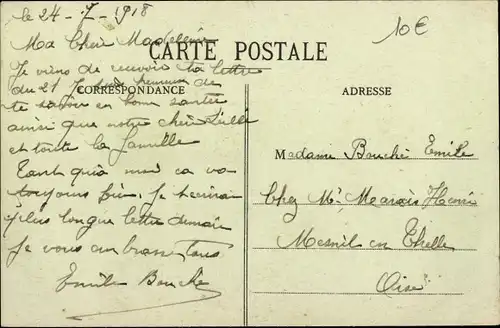 le 24-7-1918
10€
Ma chère Madeleine
CARTE POSTALE
Je viens de recevoir ta lettre
du 21 heureux de
CORRESPONDANCE
ADRESSE
te savoir en bonne santée
ainsi que notre cher
et toute la famille
Madame Bouché Emile
Tant qua moi ca va
toujours bien. Je t'ecrirai
Chez Mr Marais Henri
plus longue lettre demain
Mesnil en Thelle
Je vous embrasse tous
Oise
Emile Bouché